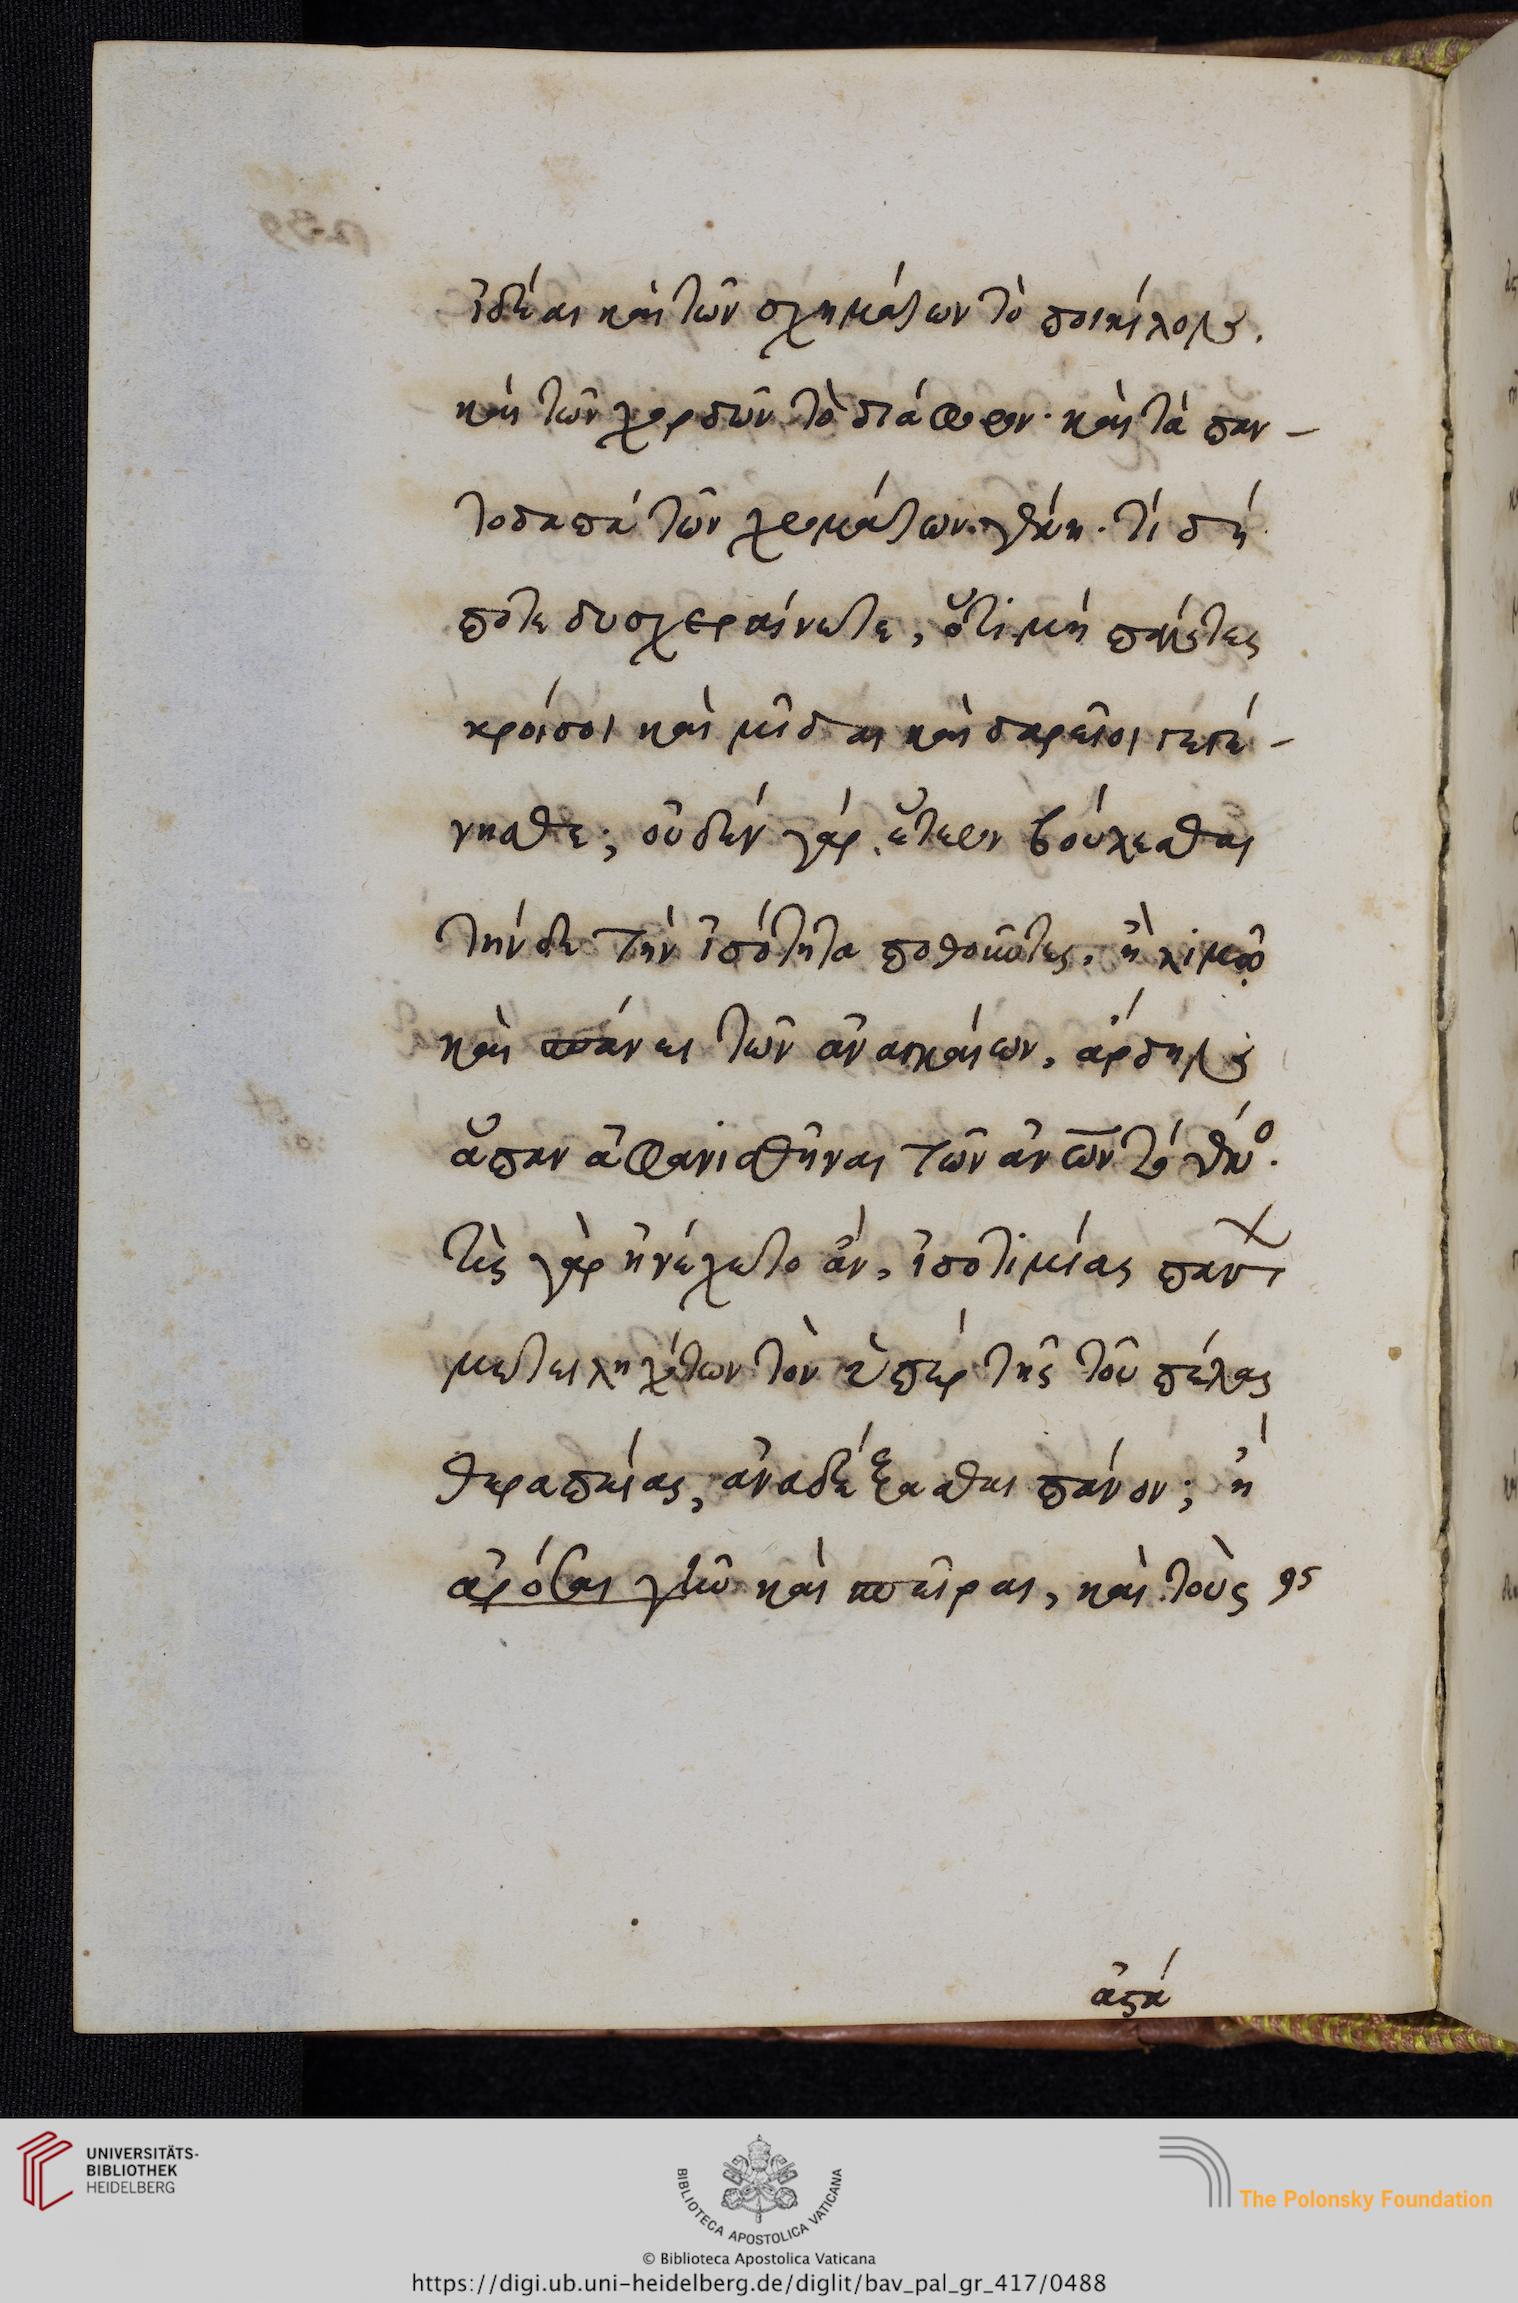 ἰδέαι καὶ τῶν σχημάτων τὸ ποικίλον.
καὶ τῶν χορδῶν τὸ διάφορον· καὶ τὰ παν-
τοδαπὰ τῶν χρωμάτων γένη. τί δή
ποτε δυσχεραίνετε, ὅτι μὴ πάντες
κροῖσοι καὶ μίδαι καὶ δαρεῖοι γεγέ-
νησθε; οὐδὲν γὰρ ἕτερον βούλεσθαι
τήνδε τὴν ἰσότητα ποθοῦντες, ἢ λιμῷ
καὶ σπάνει τῶν ἀναγκαίων, ἄρδην
ἅπαν ἀφανισθῆναι τῶν ἀνων τὸ γένος.
τίς γὰρ ἠνέχετο ἂν, ἰσοτιμίας παντ
μετειληχότων τὸν ὑπὲρ τῆς τοῦ πέλας
θεραπείας, ἀναδέξασθαι πόνον; ἢ
ἀρόσαι γῆν καὶ σπεῖραι, καὶ τοὺς
UNIVERSITÄTS-
BIBLIOTHEK
HEIDELBERG
BIBLIOTECA APOSTOLICA VATICANA
The Polonsky Foundation
© Biblioteca Apostolica Vaticana
https://digi.ub.uni-heidelberg.de/diglit/bav_pal_gr_417/0488